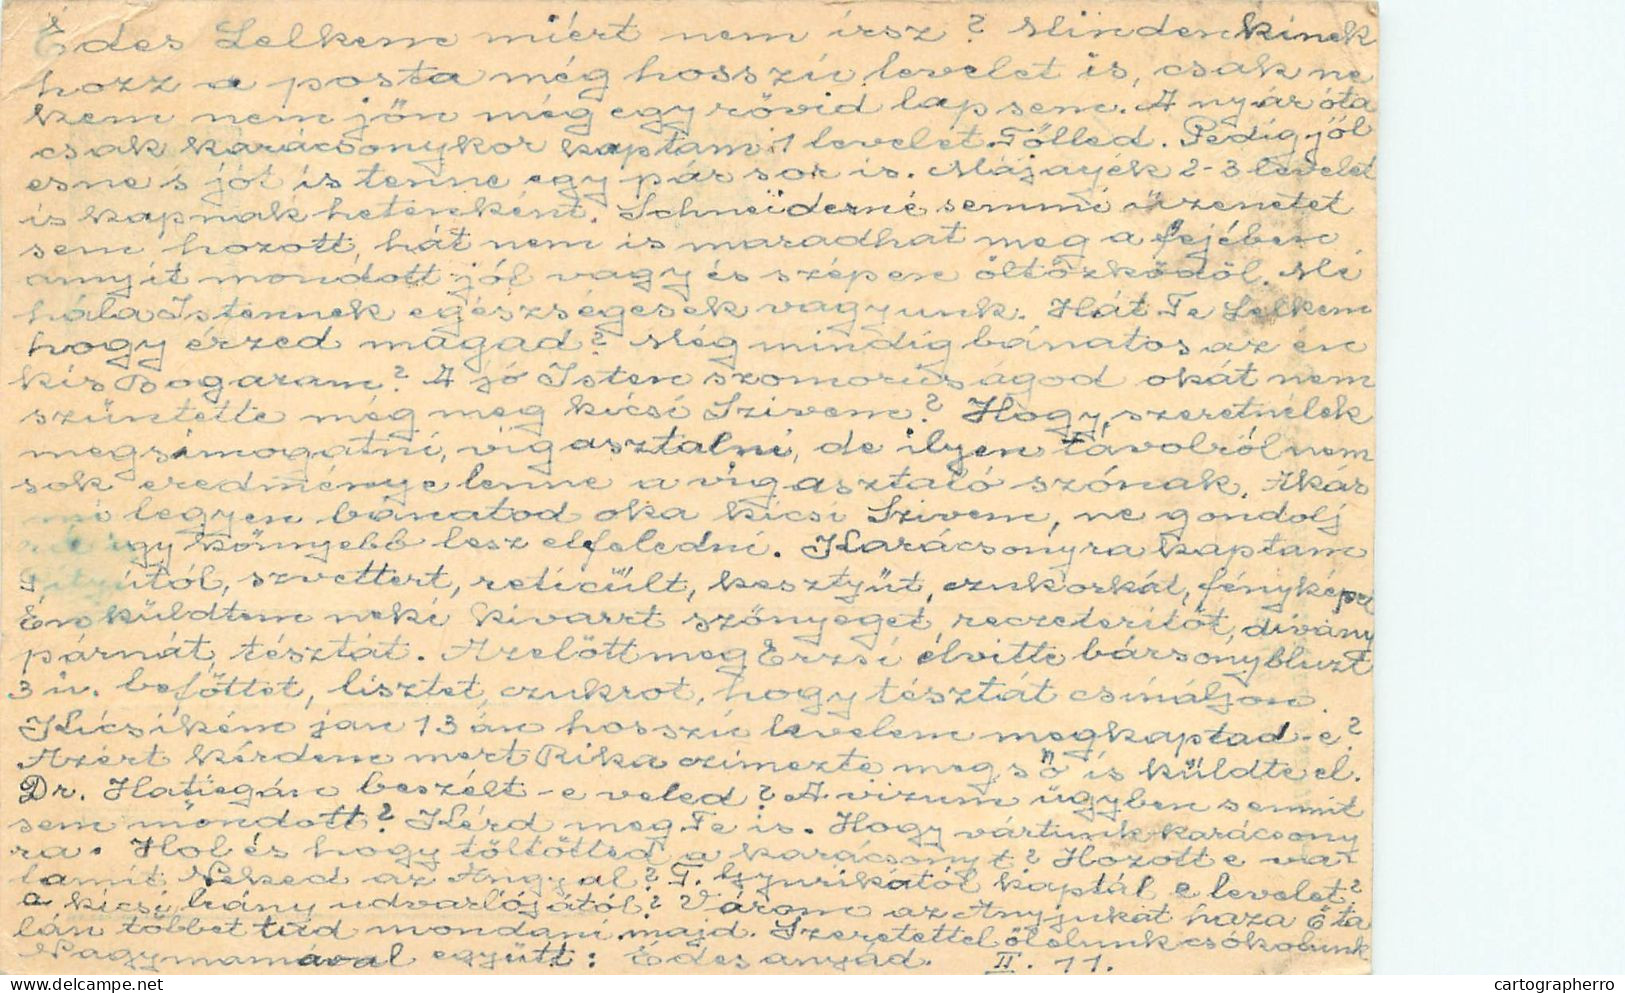 Édes Lelkem miért nem írsz? Mindenkinek
hozz a posta még hosszú levelet is, csak ne
kem nem jön még egy rövid lap sem. A nyár óta
csak karácsonykor kaptam 1 levelet Tőlled. Pedig jól
esne s jót is tenne egy pár sor is. Májayék 2-3 levelet
is kapnak hetenként. Schneiderné semmi üzenetet
sem hozott, hát nem is maradhat meg a fejében
annyit mondott jól vagy és szépen öltözködöl. Mi
hála Istennek egészségesek vagyunk. Hát Te Lelkem
hogy érzed magad? Még mindig bánatos az én
kis Bogaram? A jó Isten szomorúságod okát nem
szüntette még meg kicsi Szivem? Hogy szeretnélek
megsimogatni, vigasztalni, de ilyen távolról nem
sok eredménye lenne a vigasztaló szónak. Akár
mi legyen bánatod oka kicsi Szivem, ne gondolj
rá úgy könnyebb lesz elfeledni. Karácsonyra kaptam
szvettert, retikült, kesztyűt, czukorkát, fényképet
Én küldtem neki kivarrt szőnyeget, reczeterítőt, díván
párnát, tésztát. Azelőtt meg Erzsi elvitte bársonybluzt
3 ü. befőttet, lisztet, czukrot, hogy tésztát csináljon.
Kicsikém jan 13 án hosszú levelem megkaptad-e?
Azért kérdem mert Rika czimezte meg s ő is küldte el.
Dr. Hatiegán beszélt-e veled? A vizum ügyben semmit
sem mondott? Kérd meg Te is. Hogy vártunk karácsony
ra. Hol és hogy töltötted a karácsonyt? Hozott e va-
lamit Neked az Angyal? T. Gyurikától kaptál e levelet?
a kicsi leány udvarlójától? Várom az Anyjukát haza Ő ta
lán többet tud mondani majd. Szeretettel ölelünk csókolunk
Nagymamával együtt: Édesanyád. II. 11.
cartographerro